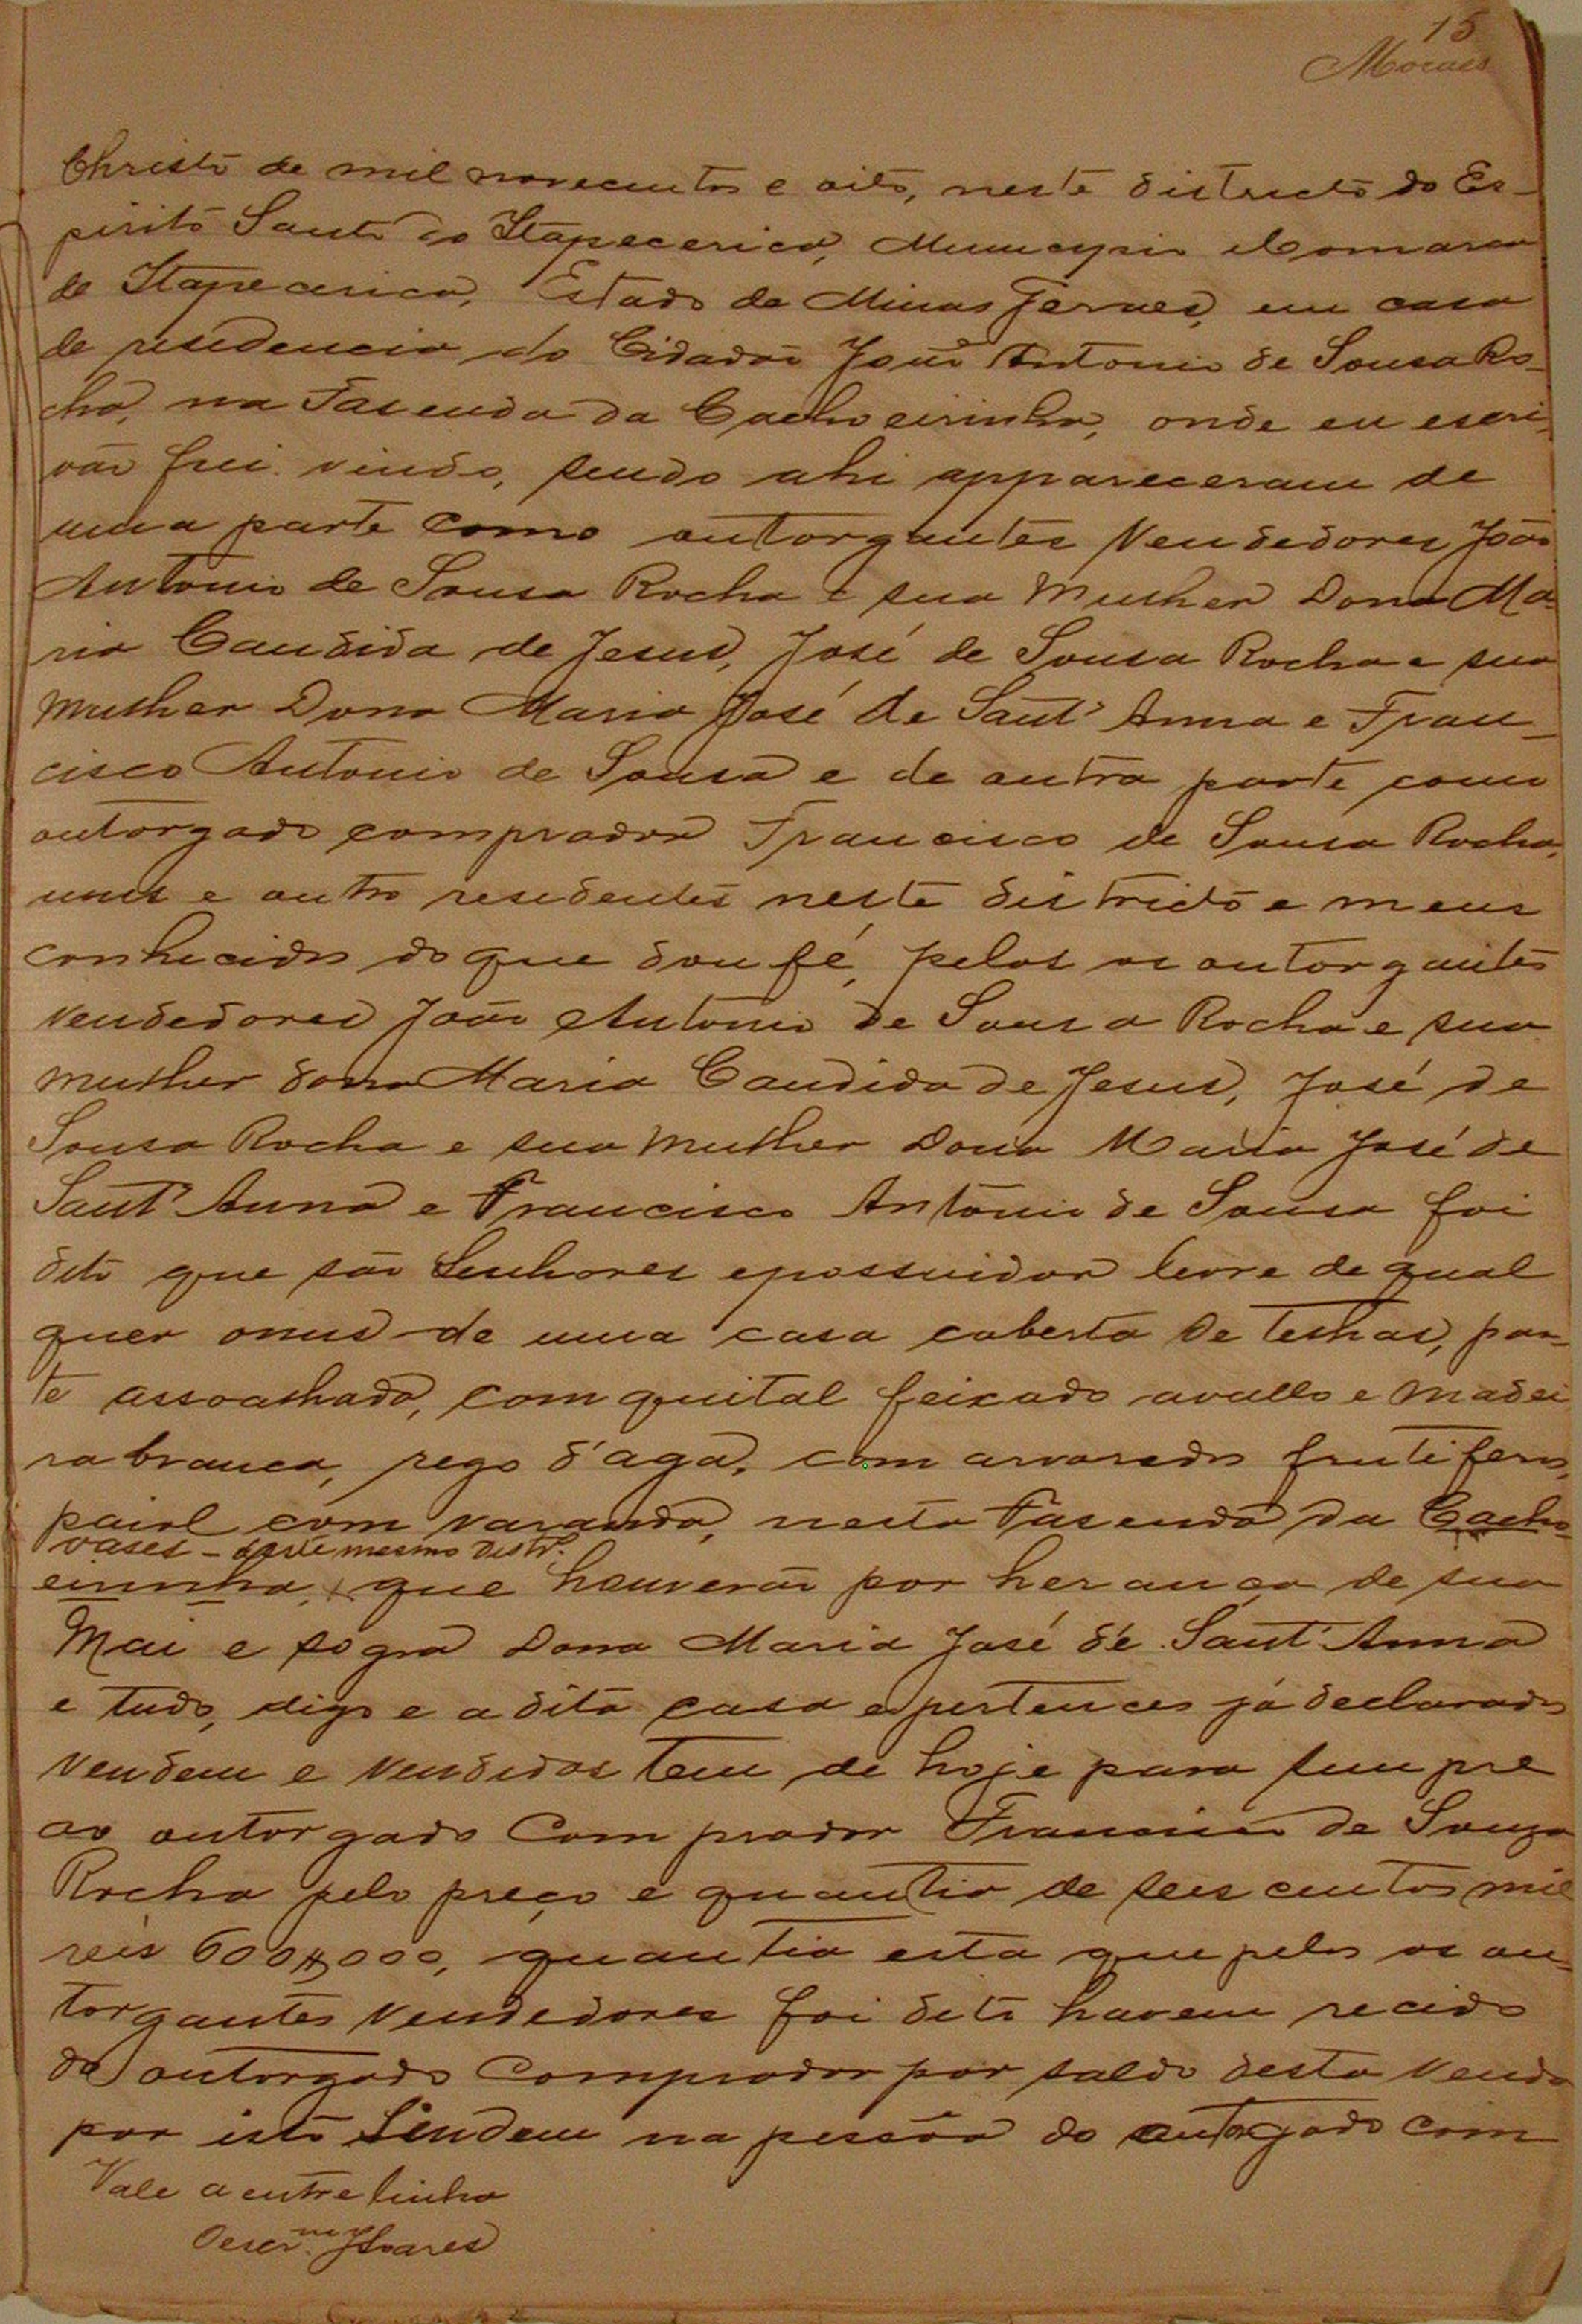 15
Moraes
Christo de mil novecentos e oito, neste districto do Es-
pirito Santo do Itapecerica, Municipio e Comarca
de Itapecerica, Estado de Minas Geraes, em casa
de residencia do Cidadão João Antonio de Sousa Ro-
cha, na Fasenda da Cachoeirinha, onde eu escri-
vão fui vindo, sendo ahi appareceram de
uma parte como outorgantes Vendedores João
Antonio de Sousa Rocha e sua Mulher Dona Ma-
ria Candida de Jesus, José de Sousa Rocha e sua
Mulher Dona Maria José de Sant' Anna e Fran-
cisco Antonio de Sousa e de outra parte como
outorgado comprador Francisco de Sousa Rocha,
uns e outro residentes neste districto e meus
conhecidos do que dou fé, pelos os outorgantes
vendedores João Antonio de Sousa Rocha e sua
mulher dona Maria Candida de Jesus, José de
Sousa Rocha e sua Mulher Dona Maria José de
Sant' Anna e Francisco Antonio de Sousa foi
dito que são Senhores e possuidor livre de qual
quer onus de uma casa coberta de telhas, par-
te assoalhada, com quital feixado a vallo e madei
ra branca, rego d'aga, com arvoredos frutiferos,
paiol com varanda, nesta Fasenda da Cacho
deste mesmo Distr.
eirinha, que houverão por herança de sua
Mai e sogra Dona Maria José de Sant' Anna
e tudo, digo e a dita casa e pertences já declarados
vendem e vendidos tem de hoje para sempre
ao outorgado Comprador Francisco de Souza
Rocha pelo preço e quantia de seis centos mil
reis 600$000, quantia esta que pelos os ou-
torgantes Vendedores foi dito haverem recido
do outorgado Comprador por saldo desta Venda
por isto Sendem na pessôa do outorgado Com
Vale a entrelinha
Oescr.m Soares